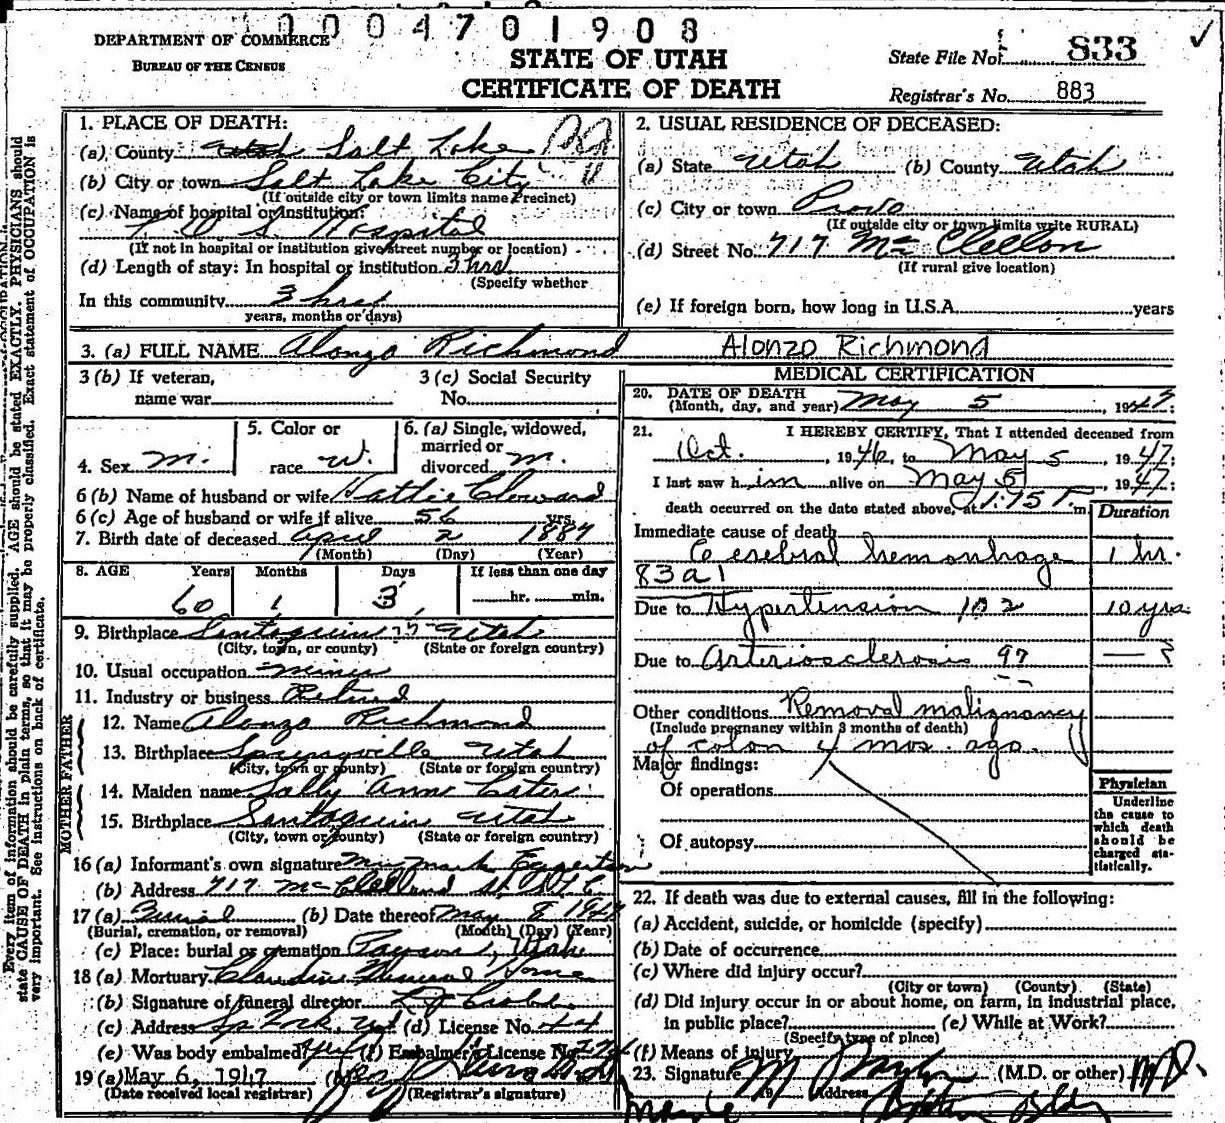 10004701908
DEPARTMENT OF COMMERCE
BUREAU OF THE CENSUS
STATE OF UTAH
CERTIFICATE OF DEATH
State File No. 833
Registrar's No. 883
1. PLACE OF DEATH:
(a) County Utah Salt Lake
(b) City or town Salt Lake City
(If outside city or town limits name Precinct)
(c) Name of hospital or institution:
L D S Hospital
(If not in hospital or institution give street number or location)
(d) Length of stay: In hospital or institution 3 hrs
(Specify whether
In this community 3 hrs
years, months or days)
2. USUAL RESIDENCE OF DECEASED:
(a) State Utah (b) County Utah
(c) City or town Provo
(If outside city or town limits write RURAL)
(d) Street No. 717 Mc Clellon
(If rural give location)
(e) If foreign born, how long in U.S.A. years
3. (a) FULL NAME Alonzo Richmond Alonzo Richmond
3 (b) If veteran, name war
3 (c) Social Security No.
4. Sex M.
5. Color or race W.
6. (a) Single, widowed, married or divorced M.
6 (b) Name of husband or wife Hattie Cloward
6 (c) Age of husband or wife if alive 56 yrs.
7. Birth date of deceased April 2 1887
(Month) (Day) (Year)
8. AGE Years Months Days If less than one day
60 1 3 hr. min.
9. Birthplace Santaquin Utah
(City, town, or county) (State or foreign country)
10. Usual occupation Miner
11. Industry or business Retired
FATHER
12. Name Alonzo Richmond
13. Birthplace Springville Utah
(City, town or county) (State or foreign country)
MOTHER
14. Maiden name Sally Ann
15. Birthplace Santaquin Utah
(City, town or county) (State or foreign country)
16 (a) Informant's own signature Mrs Mark
(b) Address 717 McClelland St
17 (a) Burial (b) Date thereof May 8 1947
(Burial, cremation, or removal) (Month) (Day) (Year)
(c) Place: burial or cremation Payson, Utah
18 (a) Mortuary Claudin Funeral Home
(b) Signature of funeral director
(c) Address Sp Fork, Ut (d) License No. 44
(e) Was body embalmed? yes (f) Embalmer's License No.
19 (a) May 6, 1947 (b)
(Date received local registrar) (Registrar's signature)
MEDICAL CERTIFICATION
20. DATE OF DEATH
(Month, day, and year) May 5, 1947
21. I HEREBY CERTIFY, That I attended deceased from
Oct., 1946, to May 5, 1947;
I last saw him alive on May 5, 1947;
death occurred on the date stated above, at 1:15 P. m.
Duration
Immediate cause of death
Cerebral hemorrhage 1 hr.
83a1
Due to Hypertension 102 10 yrs.
Due to Arteriosclerosis 97 — ?
Other conditions Removal malignancy
(Include pregnancy within 3 months of death)
of colon 4 mos. ago.
Major findings:
Of operations
Of autopsy
Physician
Underline
the cause to
which death
should be
charged sta-
tistically.
22. If death was due to external causes, fill in the following:
(a) Accident, suicide, or homicide (specify)
(b) Date of occurrence
(c) Where did injury occur?
(City or town) (County) (State)
(d) Did injury occur in or about home, on farm, in industrial place,
in public place? (e) While at Work?
(Specify type of place)
(f) Means of injury
23. Signature (M.D. or other) M.D.
Address Boston Bldg
Every item of information should be carefully supplied. AGE should be stated EXACTLY. PHYSICIANS should
state CAUSE OF DEATH in plain terms, so that it may be properly classified. Exact statement of OCCUPATION is
very important. See instructions on back of certificate.